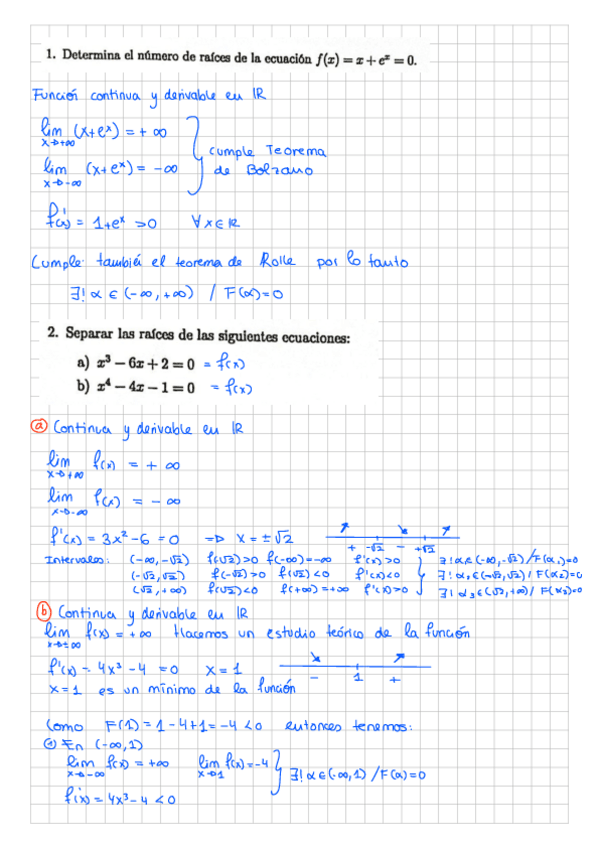 1. Determina el número de raíces de la ecuación f(x) = x + eˣ = 0.
Función continua y derivable en IR
lim (x+eˣ) = + ∞
x→+∞
cumple Teorema
de Bolzano
lim (x+eˣ) = -∞
x→-∞
f'(x) = 1+eˣ >0 ∀x∈IR
Cumple también el teorema de Rolle por lo tanto
∃! α ∈ (-∞, +∞) / F(α)=0
2. Separar las raíces de las siguientes ecuaciones:
a) x³ − 6x + 2 = 0 = f(x)
b) x⁴ − 4x − 1 = 0 = f(x)
a Continua y derivable en IR
lim f(x) = + ∞
x→+∞
lim f(x) = - ∞
x→-∞
f'(x) = 3x²-6 = 0 => x = ±√2 + -√2 - +√2
Intervalos: (-∞, -√2) f(√2)>0 f(-∞)=-∞ f'(x)>0 ∃!α∈(-∞,-√2)/F(α₁)=0
(-√2, √2) f(-√2)>0 f(√2)<0 f'(x)<0 ∃! α₂∈(-√2,√2)/ F(α2)=0
(√2, +∞) f(√2)<0 f(+∞)=+∞ f'(x)>0 ∃! α₃∈(√2,+∞)/ F(α2)=0
b Continua y derivable en IR
lim f(x) = + ∞ Hacemos un estudio teórico de la función
x→±∞
f'(x) = 4x³-4 = 0 x = 1 - 1 +
x=1 es un mínimo de la función
Como F(1) = 1-4+1 = -4 <0 entonces tenemos:
1 En (-∞,1)
lim f(x) = +∞ lim f(x) = -4
x→-∞ x→1
∃! α∈(-∞,1) /F(α)=0
f'(x) = 4x³-4 <0